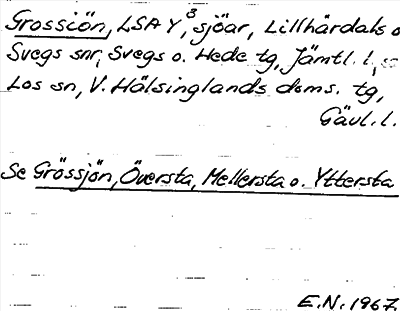 Grossiön, LSA Y, 8 sjöar, Lillhärdals o
Svegs snr, Svegs o. Hede tg, Jämtl. l,
Los sn, V. Hälsinglands doms. tg,
Gävl. l.
Se Grössjön, Översta, Mellersta o. Yttersta
E.N. 1967.